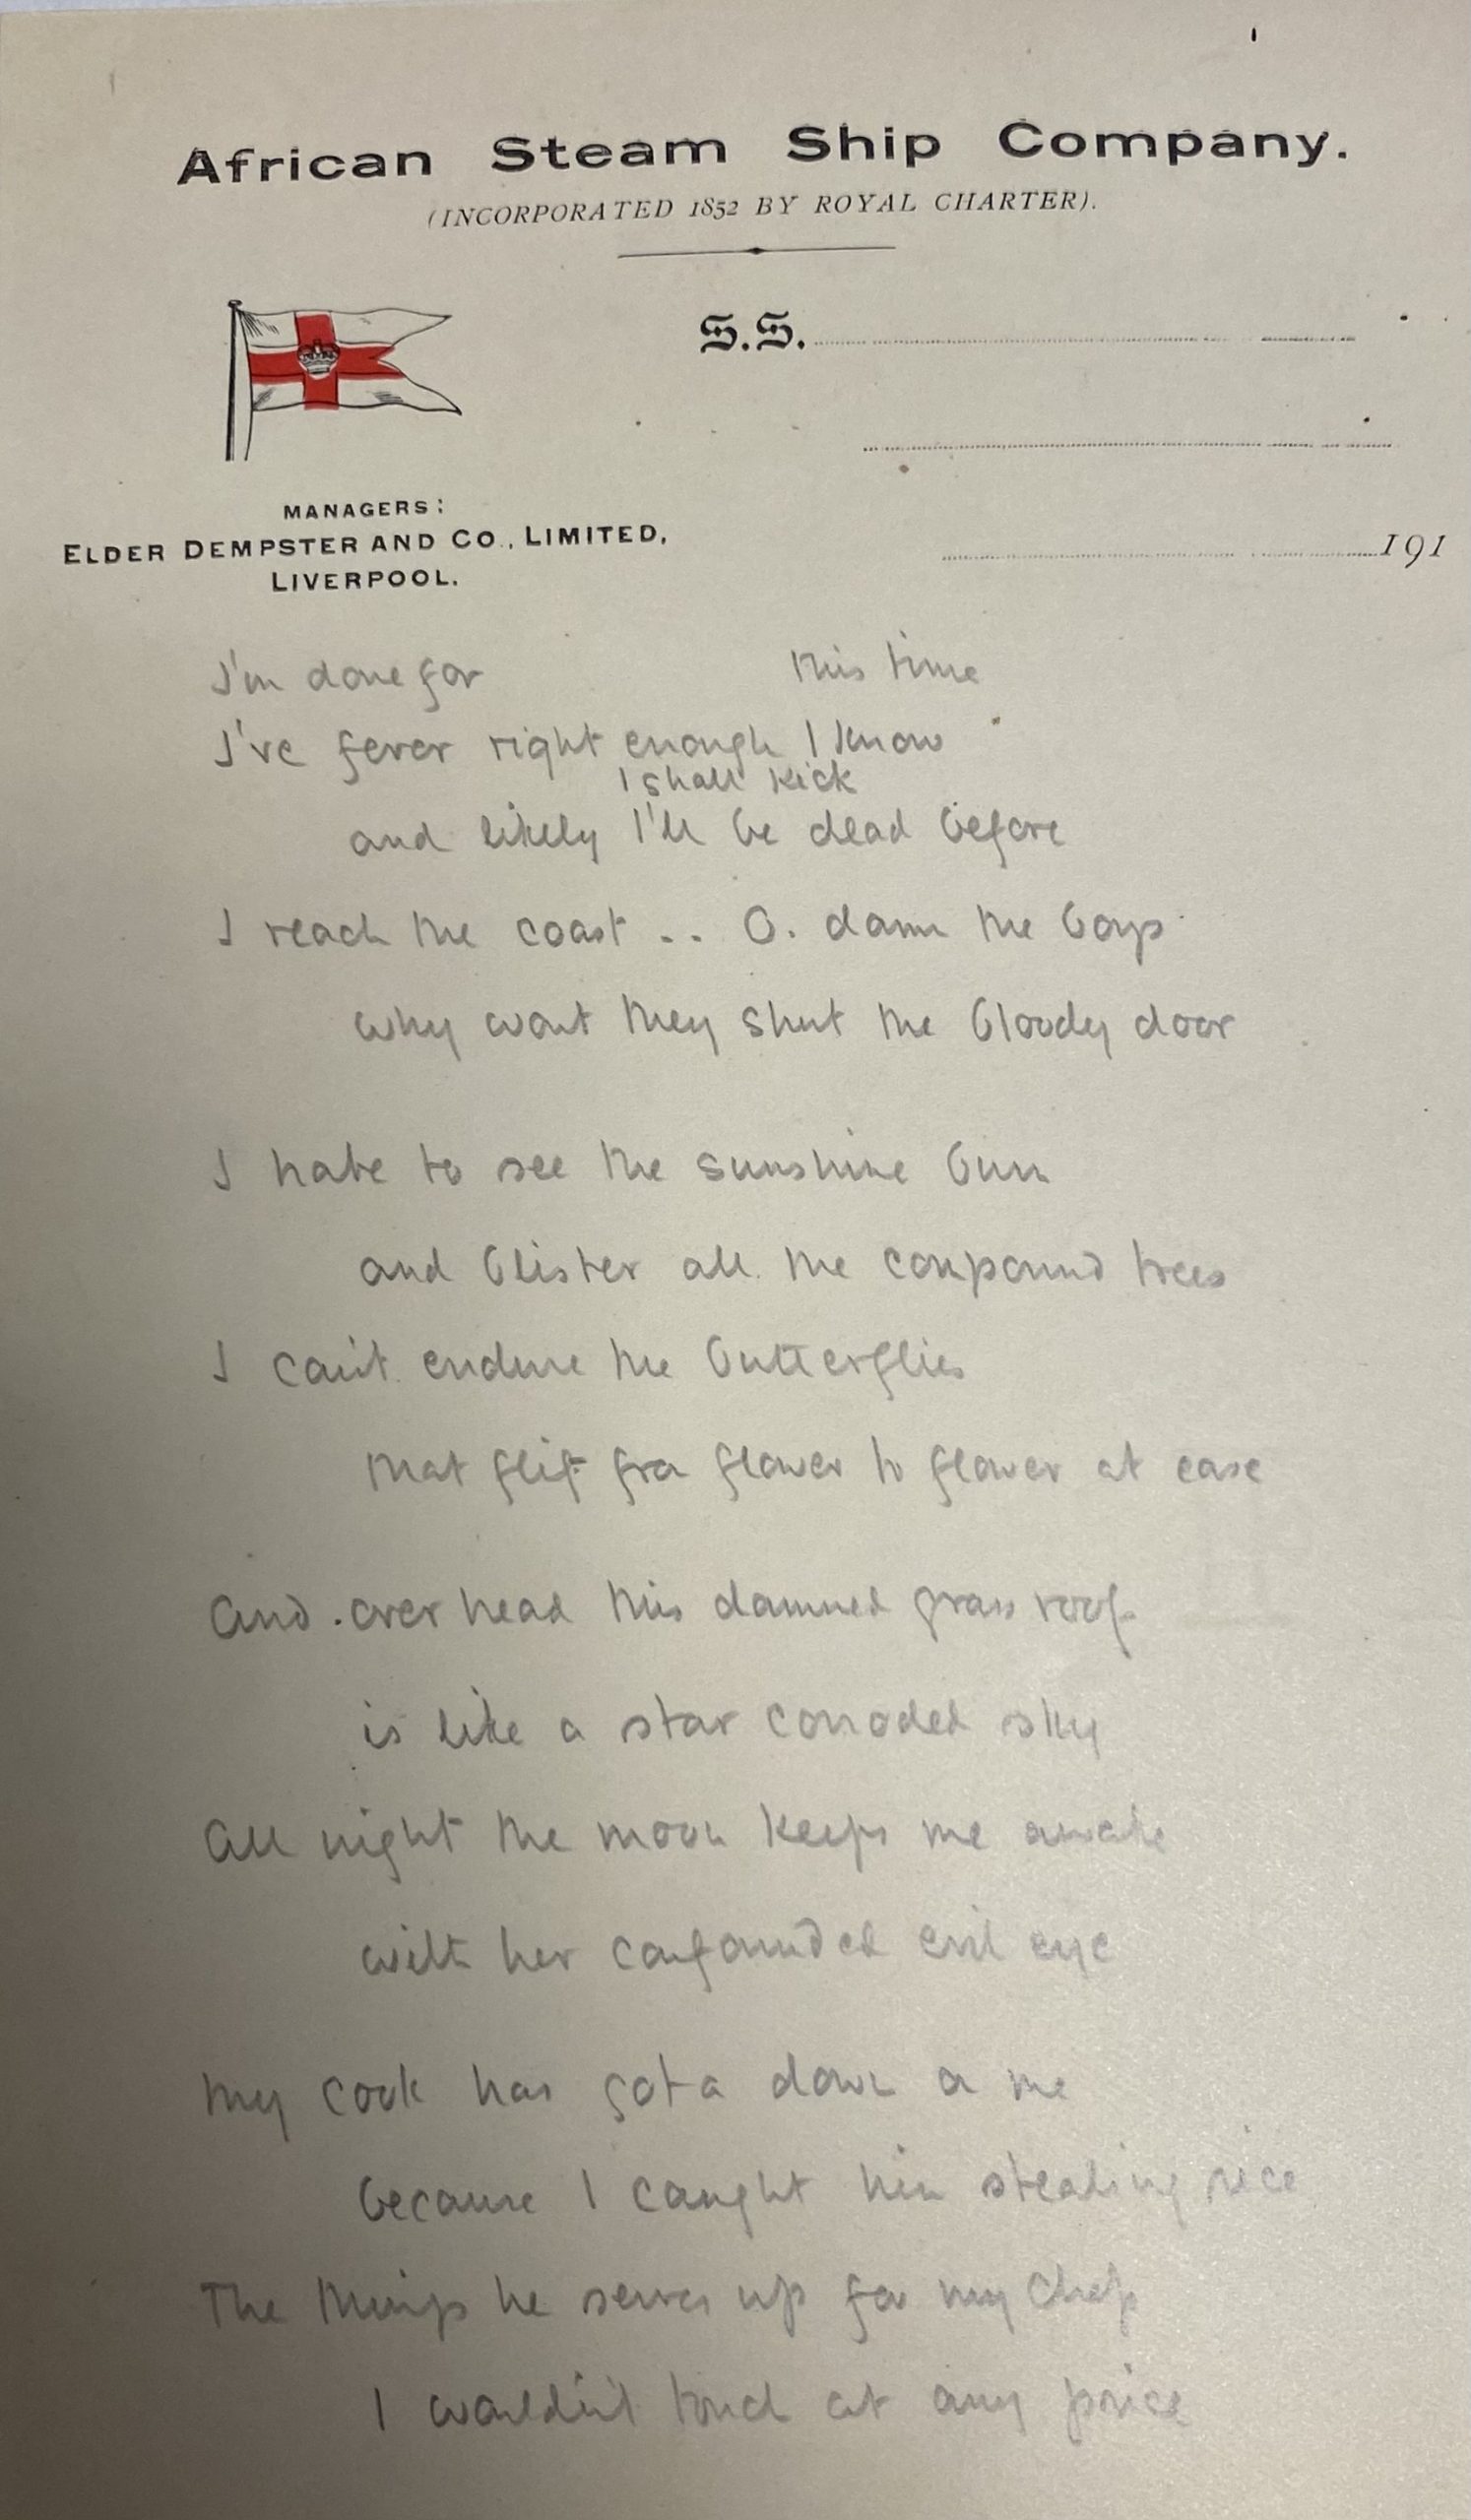 African Steam Ship Company.
(INCORPORATED 1852 BY ROYAL CHARTER).
S.S.
MANAGERS:
ELDER DEMPSTER AND CO., LIMITED,
LIVERPOOL.
191
I'm done for this time
I've fever right enough I know
I shall kick
and likely I'll be dead before
I reach the coast .. O. damn the boys
why wont they shut the bloody door
I hate to see the sunshine burn
and blister all the compound trees
I can't endure the butterflies
that flit from flower to flower at ease
And over head this damned grass roof
is like a star corroded sky
All night the moon keeps me awake
with her confounded evil eye
My cook has got a down on me
because I caught him stealing rice
The things he serves up for my chop
I wouldn't touch at any price